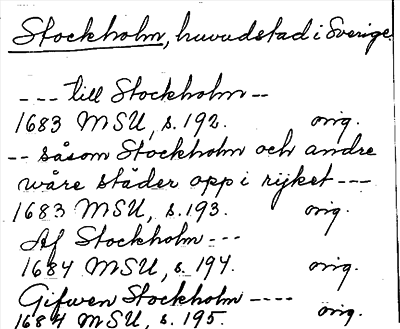 Stockholm, huvudstad i Sverige.
--- till Stockholm --
1683 MSU, s. 192. orig.
-- såsom Stockholm och andre
wåre städer opp i rijket ---
1683 MSU, s. 193. orig.
Af Stockholm ---
1684 MSU, s. 194. orig.
Gifwen Stockholm ----
1684 MSU, s. 195. orig.